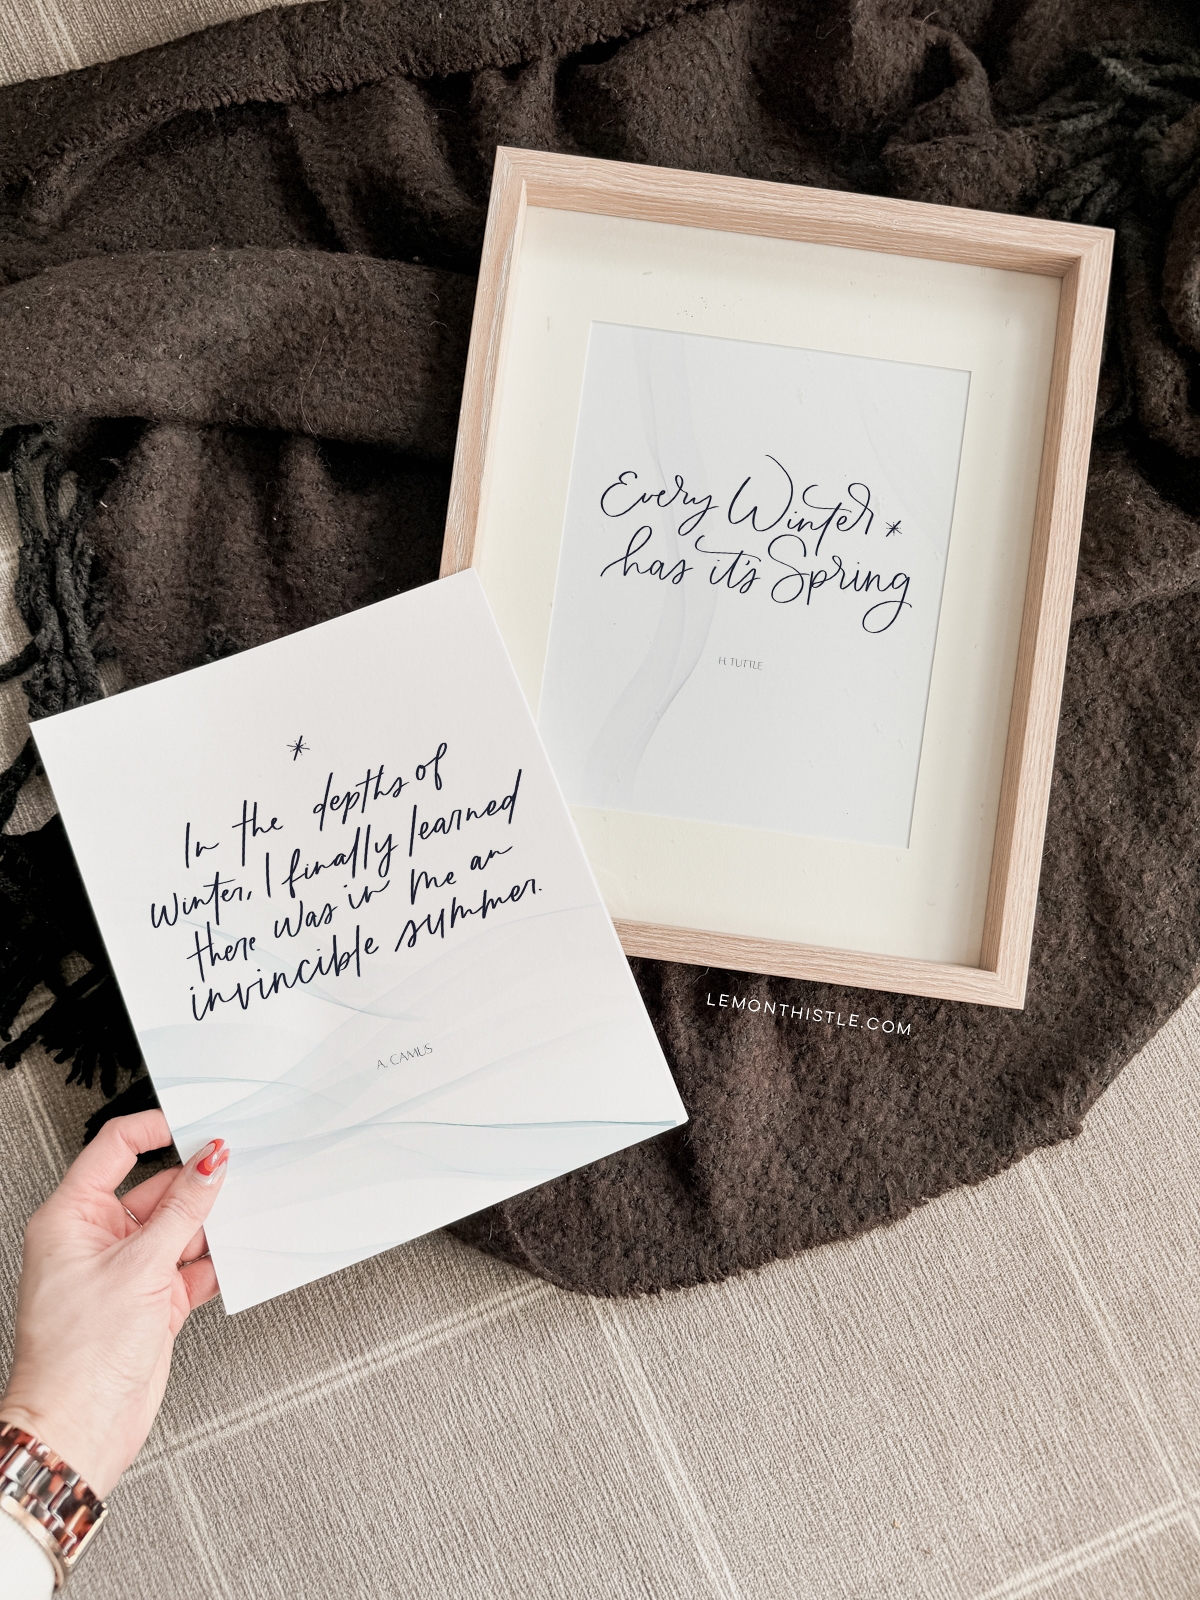 Every Winter
has it's Spring
H. TUTTLE
In the depths of
Winter, I finally learned
there was in me an
invincible summer.
A. CAMUS
LEMONTHISTLE.COM